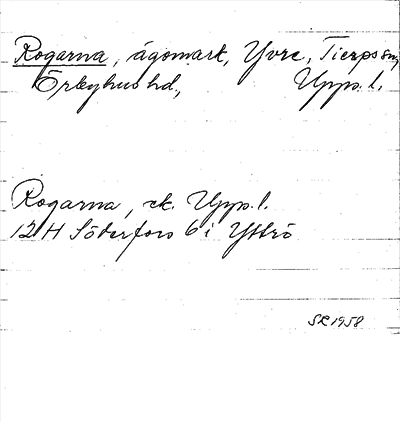 Rogarna, ägomark, Yvre, Tierps sn,
Örbyhus hd, Upps. l.
Rogarna, ek. Upps. l.
12 H Söderfors 6 i Yttrö
SR 1958